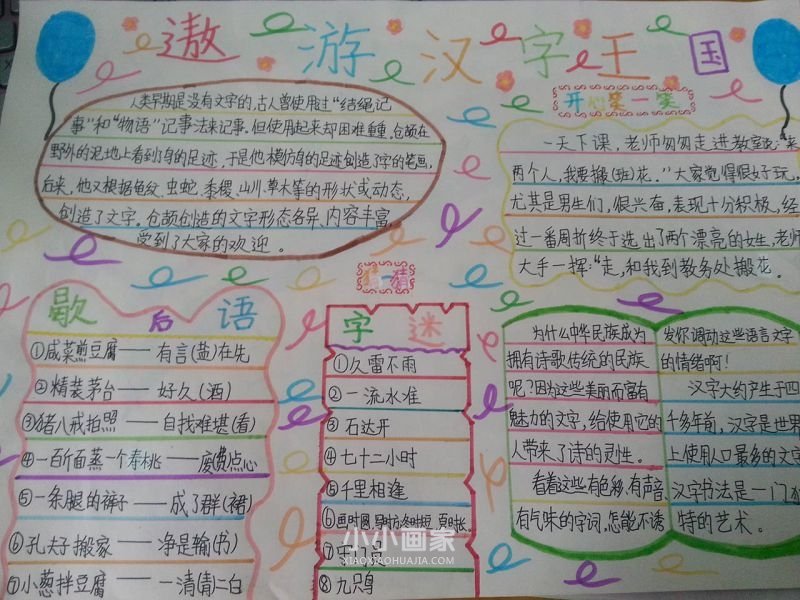 遨游汉字王国
人类早期是没有文字的,古人曾使用过“结绳记
事”和“物语”记事法来记事。但使用起来却困难重重,仓颉在
野外的泥地上看到鸟的足迹,于是他模仿鸟的足迹创造了字的笔画,
后来,他又根据龟纹、虫蛇、禾稷、山川、草木等的形状或动态,
创造了文字。仓颉创造的文字形态各异、内容丰富,
受到了大家的欢迎。
开心笑一笑
一天下课,老师匆匆走进教室说:“来
两个人,我要搬(班)花.”大家觉得很好玩。
尤其是男生们,很兴奋,表现十分积极,经
过一番周折终于选出了两个漂亮的女生,老师
大手一挥:“走,和我到教务处搬花。
歇后语
①咸菜煎豆腐——有言(盐)在先
②精装茅台——好久(酒)
③猪八戒拍照——自找难堪(看)
④一百斤面蒸一个寿桃——废费点心
⑤一条腿的裤子——成了群(裙)
⑥孔夫子搬家——净是输(书)
⑦小葱拌豆腐——一清(青)二白
猜一猜
字迷
①久雷不雨
②一流水准
③石达开
④七十二小时
⑤千里相逢
⑥画时圆,写时方,冬时短,夏时长。
⑧九只鸟
为什么中华民族成为
拥有诗歌传统的民族
呢?因为这些美丽而富有
魅力的文字,给使用它的
人带来了诗的灵性。
看着这些有色彩、有声音、
有气味的字词,怎能不诱
发你调动这些语言文字
的情绪啊!
汉字大约产生于四
千多年前,汉字是世界
上使用人口最多的文字
汉字书法是一门独
特的艺术。
小小画家
XIAOXIAOHUAJIA.COM